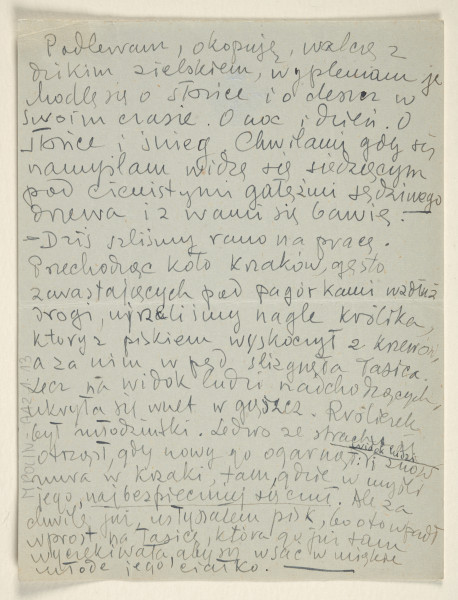 Podlewam, okopuję, walczę z
dzikim zielskiem, wyplemiam je
Modlę się o słońce i o deszcz w
swoim czasie. O noc i dzień. O
słońce i śnieg. Chwilami gdy się
namyślam widzę się siedzącym
pod cienistymi gałęźmi sędziwego
drzewa i z wami się bawię. —
— Dziś szliśmy rano na pracę.
Przechodząc koło krzaków, gęsto
zawastających pod pagórkami wzdłuż
drogi, ujrzeliśmy nagle królika,
który z piskiem wyskoczył z krzewów,
a za nim w pęd śliznęła łasica.
Lecz na widok ludzi nadchodzących,
ukryła się wnet w gąszcz. Króliczek
był młodziutki. Ledwo ze strachu się
otrząsł, gdy nowy go ogarnął
widok ludzi
i znów
nura w krzaki, tam, gdzie w myśli
jego, najbezpieczniej się czuł. Ale za
chwilę już usłyszałem pisk, bo oto wpadł
wprost na łasicę, która go już tam
wyczekiwała, aby się wssać w miękkie
młode jego ciałko. —
MPOLIN-A42.1.13